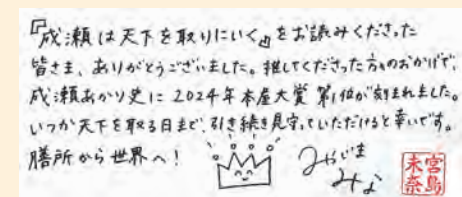 『成瀬は天下を取りにいく』をお読みくださった
皆さま、ありがとうございました。推してくださった方々のおかげで、
成瀬あかり史に2024年本屋大賞 第1位が刻まれました。
いつか天下を取る日まで、引き続き見守っていただけると幸いです。
膳所から世界へ!
みやじま
みな
宮島
未奈